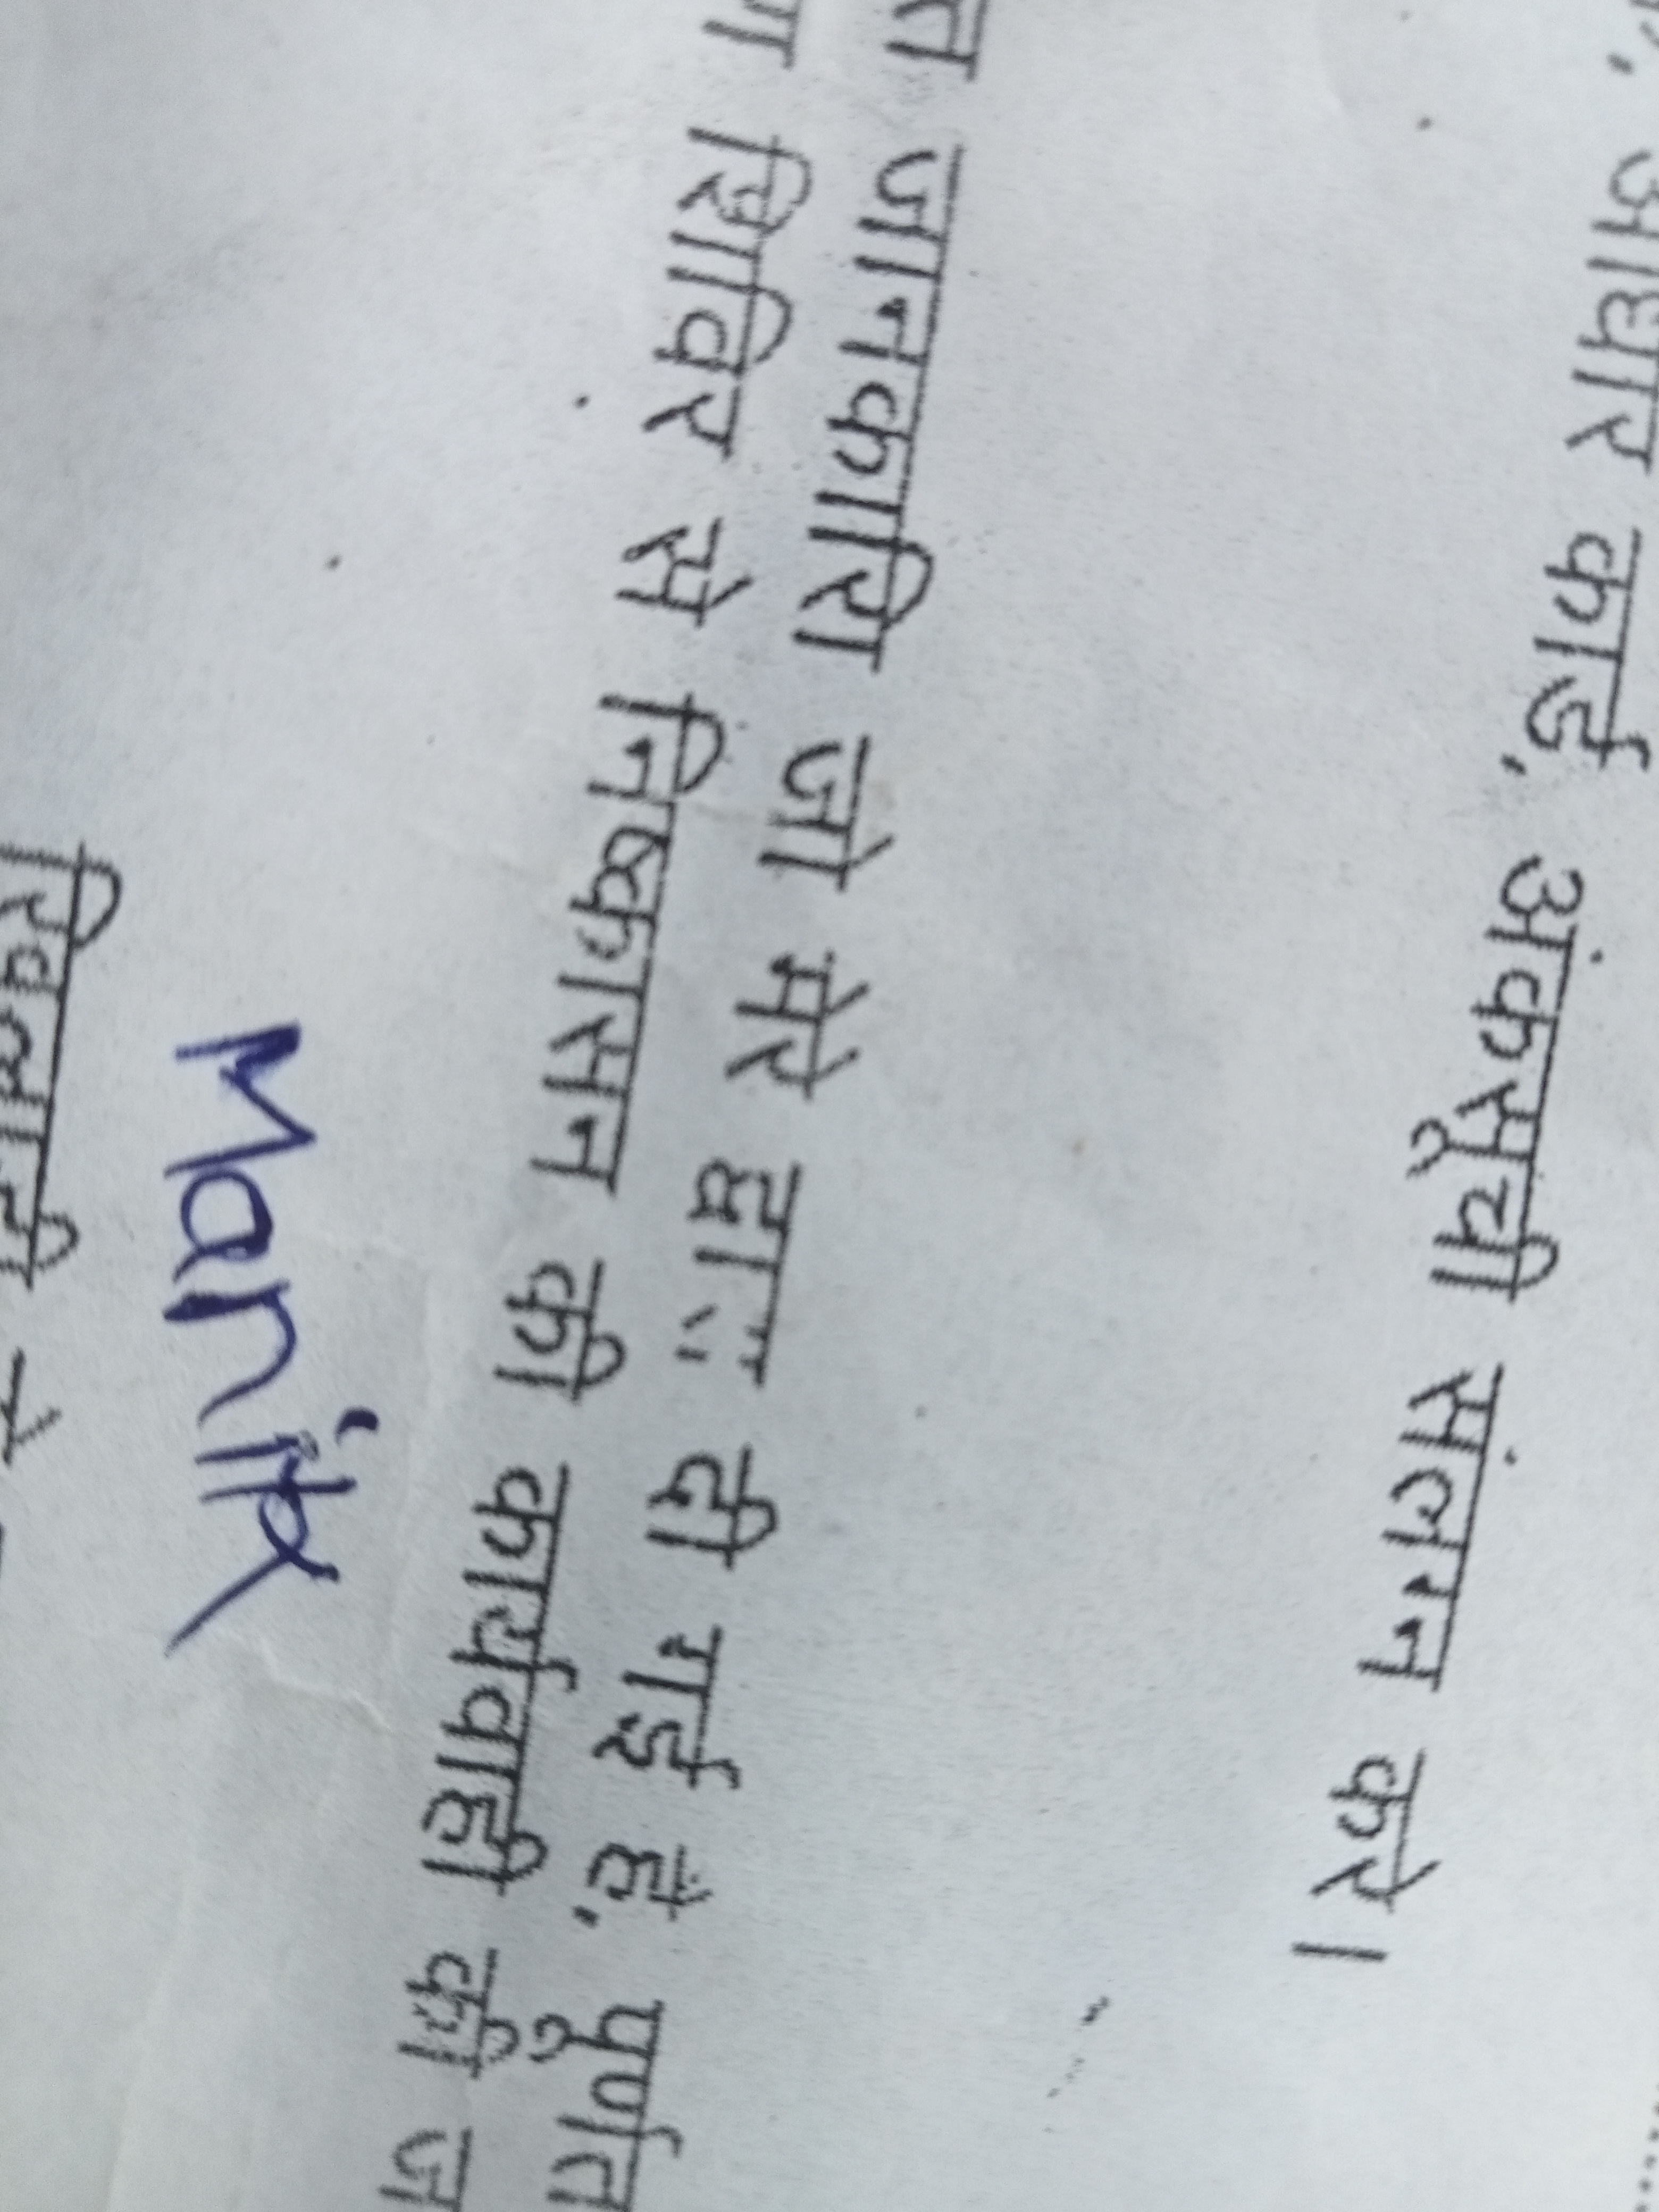 आधार कार्ड, अंकसूची संलग्न करे।
जानकारी जो मेरे द्वारा दी गई है, पूर्णत
शिविर से निष्कासन की कार्यवाही की ज
Manita
खिलाड़ी